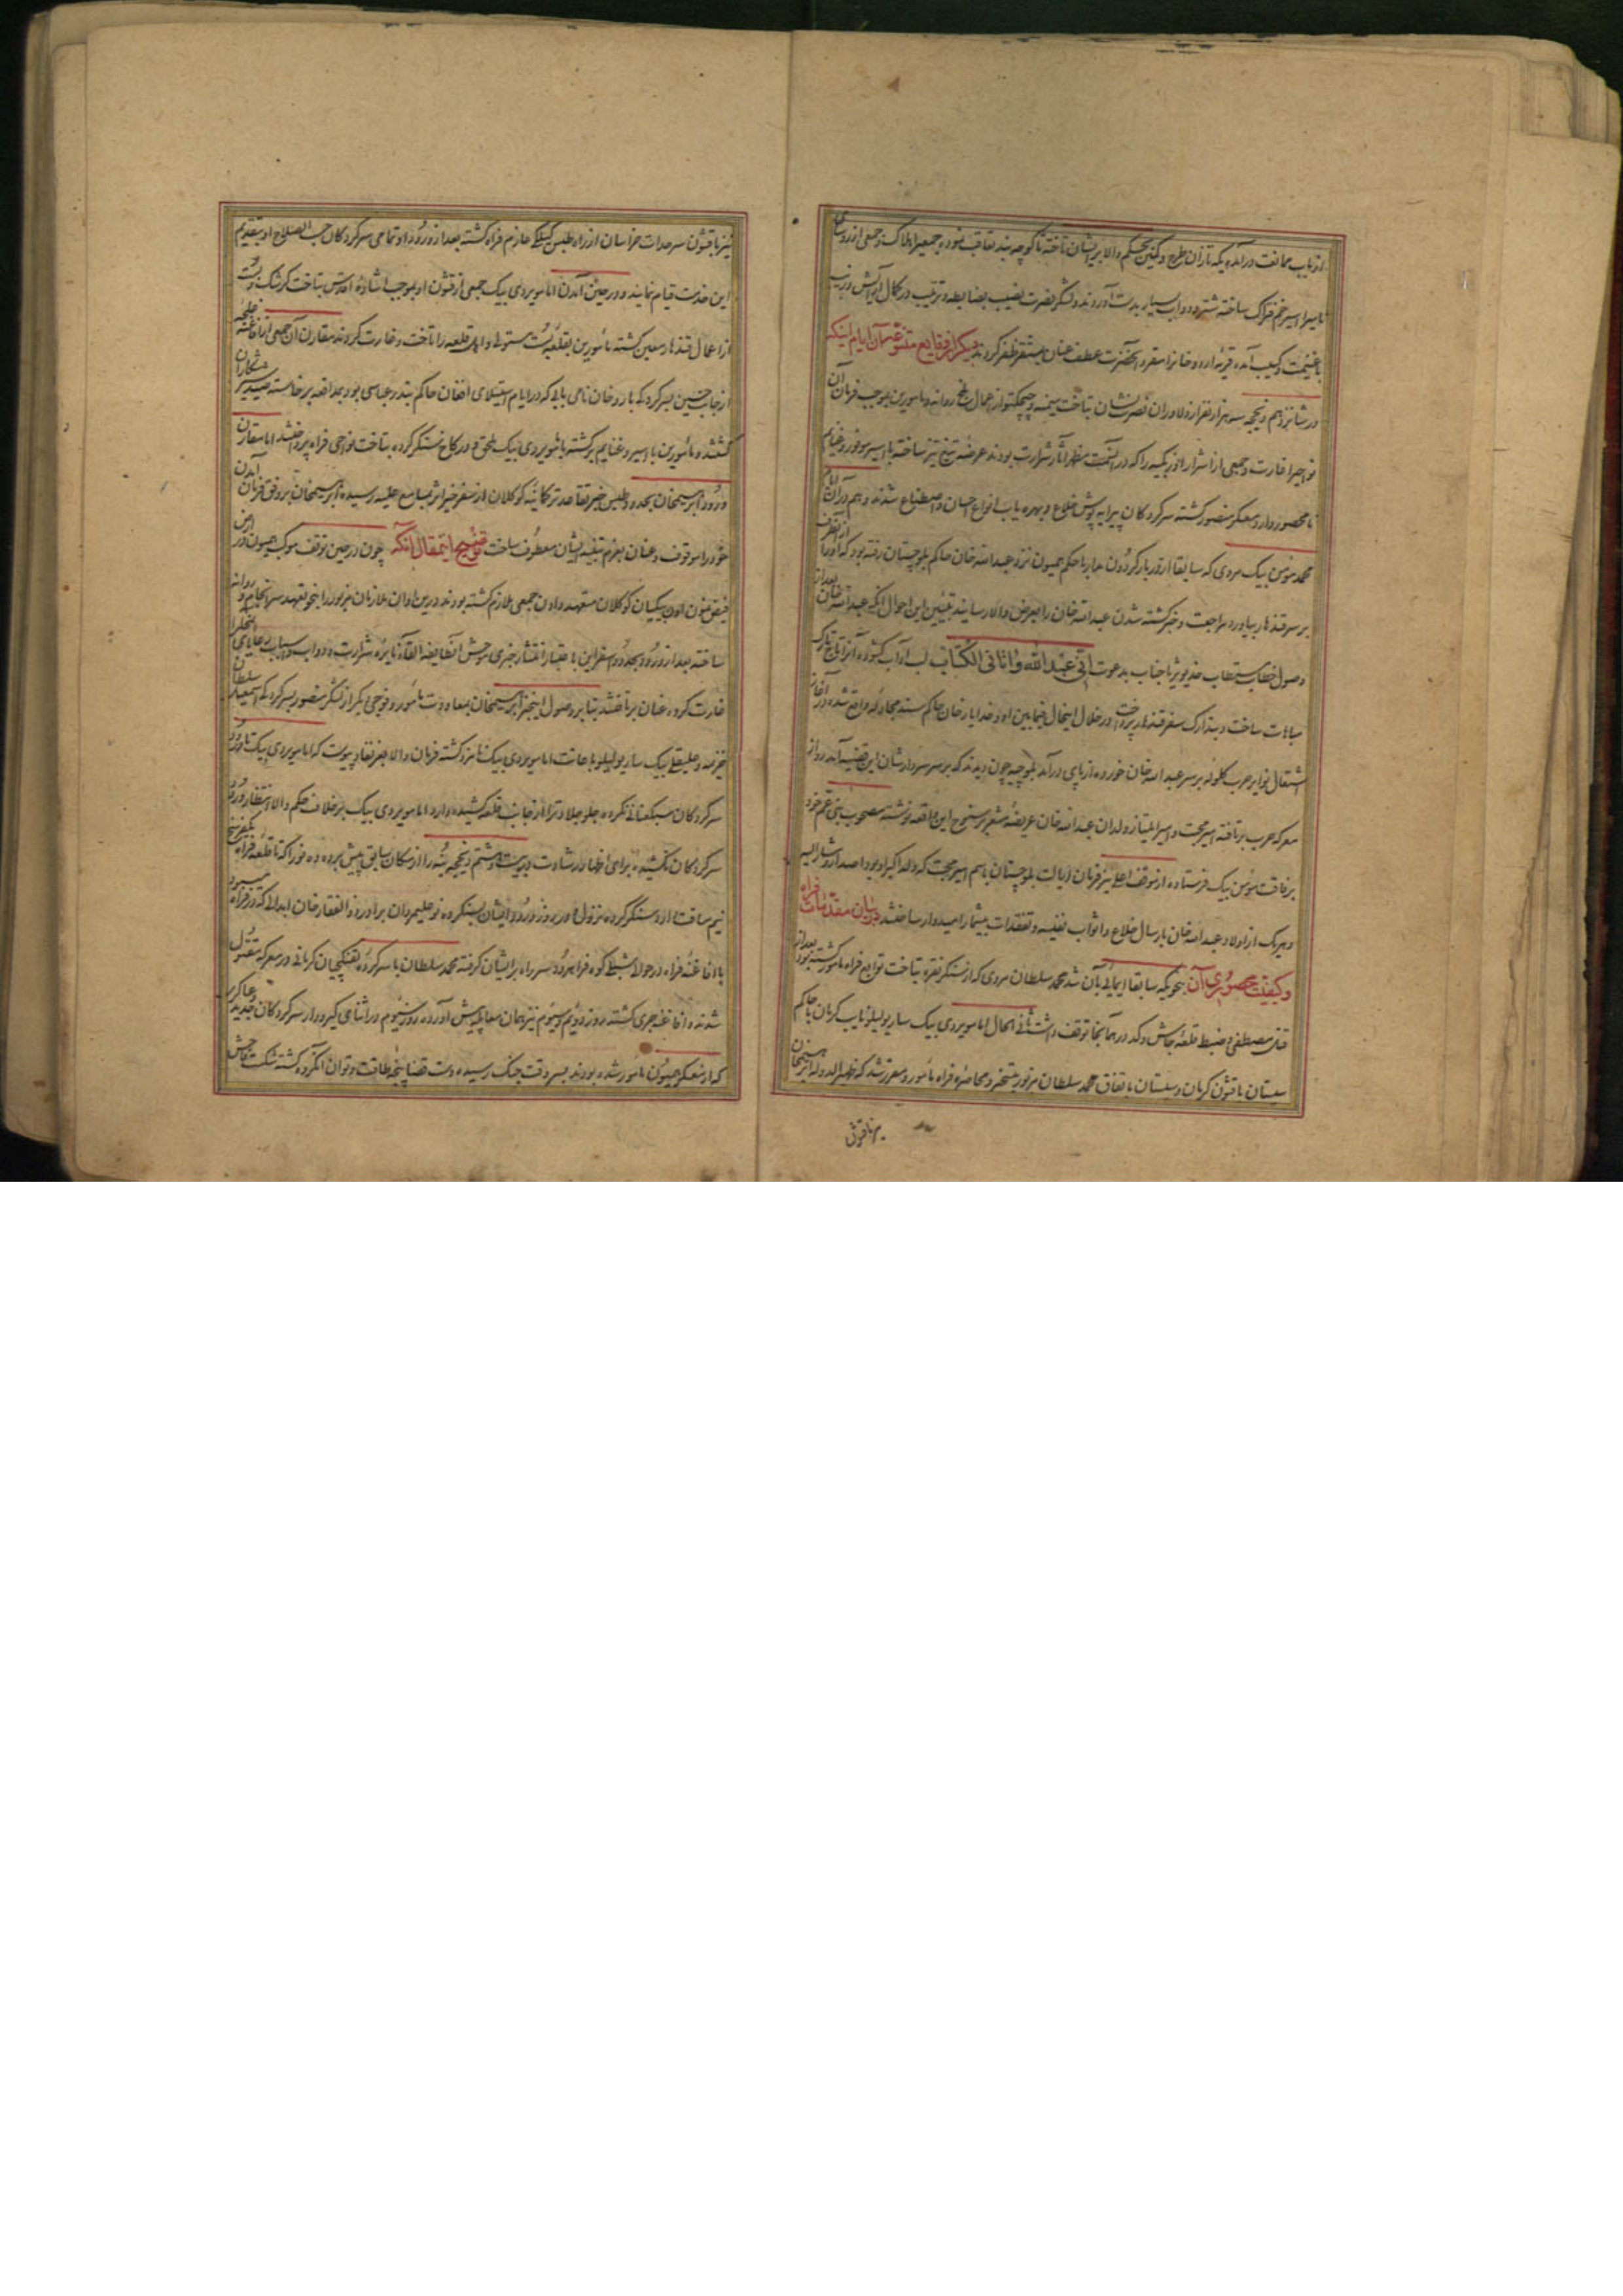 از باب ممانعت درآمده یکه تازان طرح و کمین بحکم والا بر ایشان تاخته تا کوچه بند تعاقب نموده جمعی را هلاک و جمعی از رؤسای
نامی را اسیر خم فتراک ساخته شتر و دواب بسیار بدست آوردند و لشکر نصرت نصیب بضابطه و ترتیب در کمال آرایش و زینت
با غنیمت و کسیب آمده قرین اردو خانرا مقر و آنحضرت عطف عنان بمستقر ظفر کردند دیگر از وقایع متنوعه آن ایام اینکه
در شانزدهم ذیحجه سه هزار نفر از دلاوران نصرت نشان بتاخت میمنه و چیچکتو از اعمال بلخ روانه و مامورین بموجب فرمان آن
نواحی را غارت و جمعی از اشرار اوزبکیه را که در آنسمت مظهر آثار شرارت بودند عرضه تیغ تیز ساخته با اسیر موفور و غنایم
نامحصور وارد معسکر منصور گشته سرکردگان پیرایه پوش خلاع و بهره یاب انواع احسان و اصطناع شدند و هم در آن ایام
محمد مؤمن بیک مروی که سابقا از دربار گردون مدار با حکم همیون نزد عبدالله خان حاکم بلوچستان رفته بود که او را از آنطرف
بر سر قندهار بیاورد مراجعت و خبر کشته شدن عبدالله خان را بعرض والا رسانید تبیین این احوال آنکه عبدالله خان بعد از
وصول خطاب مستطاب خدیو پر نا جناب بدعوت انی عبدالله و اتانی الکتاب لب آداب گشوده آنرا تاج تارک
مباهات ساخت و بتدارک سفر قندهار پرداخت در خلال اینحال فیمابین او و خدایار خان حاکم سند محاربه واقع شده در آغاز
اشتعال نوایر حرب گلوله بر سر عبدالله خان خورده از پای درآمد بلوچیه چون دیدند که بر سر سردارشان این قضیه آمد رو از
معرکه حرب برتافته امیر محبت و امیر ایلتیاز ولدان عبدالله خان عریضه مشعر بر سنوح این واقعه نوشته مصحوب بنی عم خود
برفاقت مؤمن بیک فرستاده از موقف اعلی نیز فرمان ایالت بلوچستان باسم امیر محبت که ولد اکبر او بود اصدار و مشار الیه
و هر یک از اولاد عبدالله خان بارسال خلاع و اثواب نفیسه و تفقدات بیشمار امیدوار ساختند در بیان مقدمات فراه
و کیفیت محصوری آن بنحویکه سابقا ایمائی بآن شد محمد سلطان مروی که از سنگر نقره بتاخت توابع فراه مامور گشته بود بعد از
قتل مصطفی و ضبط قلعه جاش و کده در همانجا توقف داشت ثانی الحال امامویردی بیک ساریولیلو نایب کرمان با حاکم
سیستان با قشون کرمان و سیستان باتفاق محمد سلطان مزبور بتسخیر و محاصره فراه مامور و مقرر شد که ظهیر الدوله ابرهیمخان
نیز با قشون سرحدات خراسان از راه طبس گیلکی عازم فراه گشته بعد از ورود او تمامی سرکردگان حسب الصلاح او بتقدیم
این خدمت قیام نمایند و در حین آمدن امامویردی بیک جمعی از قشون او بموجب اشاره اقدس بتاخت گرشک و بست
از اعمال قندهار معین گشته مامورین بقلعه بست مستولی و اهل قلعه را تاخت و غارت کردند مقارن آن جمعی از افاغنه غلجه
از جانب حسین بسرکردگی باروخان نامی بابی که در ایام استیلای افغان حاکم بندر عباسی بود بمدافعه برخاسته صید سر پنجه شکاران
گشتند و مامورین با اسیر و غنایم برگشته بامامویردی بیک ملحق و در کاخ سنگر کرده بتاخت نواحی فراه پرداختند اما مقارن
ورود ابرهیمخان بحدود طبس خبر تقاعد ترکمانیه گوکلان از سفر خیر اثر بمسامع علیه رسیده ابرهیمخان بر وفق فرمان آمدن
خود را موقوف و عنان بعزم تنبیه ایشان معطوف ساخت توضیح اینمقال آنکه چون در حین توقف موکب همیون در ارض
فیض مشحون اون بیکیان گوکلان متعهد دادن جمعی ملازم گشته بودند درین اوان ملازمان مزبور را بنحو تعهد سرانجام و روانه
ساخته بعد از ورود بحدود اسفراین باعتبار انتشار خبری موحش آنطایفه القای نایره شرارت و دواب و اسباب رعایای آنمحل را
غارت کرده عنان برتافتند بنابر وصول اینخبر ابرهیمخان بمعاودت مامور و فوجی دیگر از لشکر منصور بسرکردگی اسمعیل سلطان
خزیمه و علیقلی بیک ساریولیلو باعانت امامویردی بیک نامزد گشته فرمان والا بعز نفاذ پیوست که امامویردی بیک تا ورود
سرکردگان سبکعنانی نکرده جلو جلادت را از جانب قلعه کشیده دارد امامویردی بیک بر خلاف حکم والا انتظار ورود
سرکردگان نکشیده برای اظهار رشادت در بیست و هشتم ذیحجه بنه را از مکان سابق پیش برده در نوراگه تا قلعه فراه یکفرسخ و
نیم مسافت دارد سنگر کرده نزول و در روز ورود ایشان بسنگر ده نو علیمردان برادر ذوالفقار خان ابدالی که در فراه میبود
با افاغنه فراه در حوالی شط کوه فراه رود سر راه بر ایشان گرفته محمد سلطان با سرکرده تفنگچیان کرمانی در معرکه مقتول
شدند و افاغنه جری گشته در روز دویم و سیوم نیز همان معامله پیش آورده روز سیوم در اثنای گیرودار سرکردگان جدید و عساکری
که از معسکر همیون مامور شده بودند بسر وقت جنگ رسیده دست قضا پنجه طاقت و توان آنگروه گشته شکست فاحش
نیز با قشون